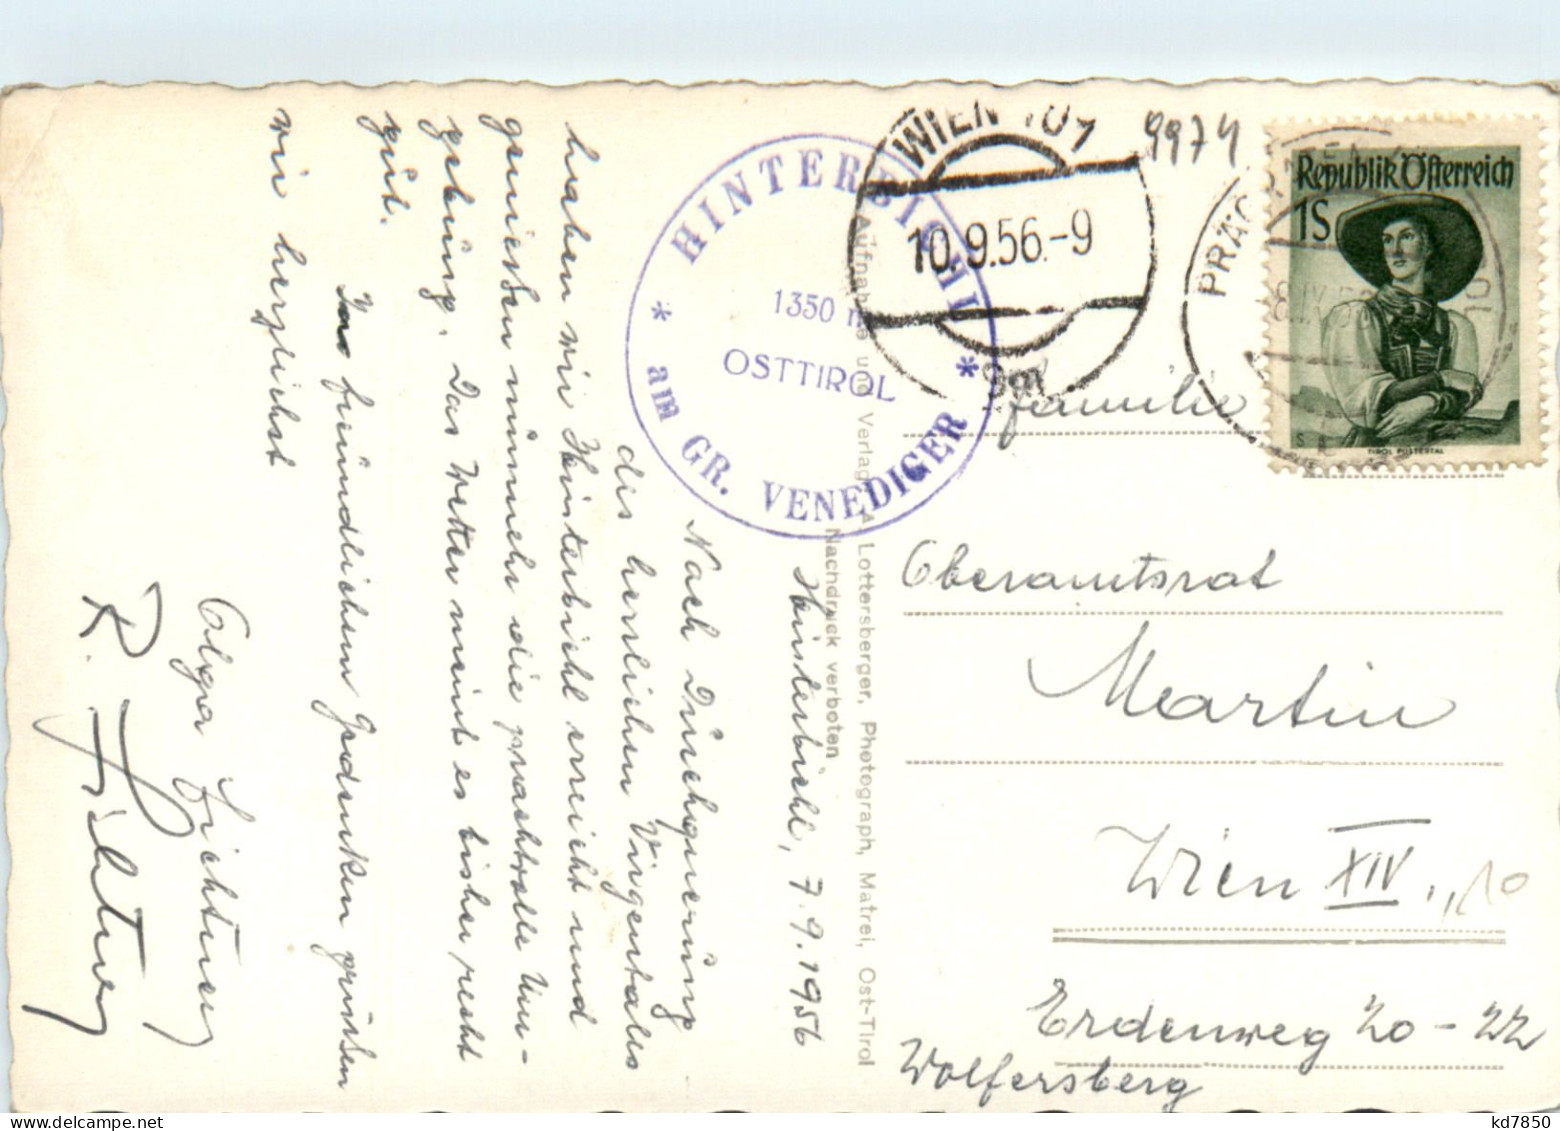 Hinterbichl, 7.9.1956
Nach Durchquerung
des herrlichen Virgentales
haben wir Hinterbichl erreicht und
genießen nunmehr die prachtvolle Um-
gebung. Das Wetter meint es bisher recht
gut.
In freundlichem Gedenken grüßen
wir herzlichst
Olga
R.
HINTERBICHL
1350 m
OSTTIROL
* am GR. VENEDIGER *
Aufnahme und Verlag A. Lottersberger, Photograph, Matrei, Ost-Tirol
Nachdruck verboten
WIEN 101
10.9.56.-9
9974
PRÄGRATEN
Republik Österreich
1S
TIROL PUSTERTAL
Familie
Oberamtsrat
Martin
Wien XIV.
Erdenweg 20-22
Wolfersberg
kd7850